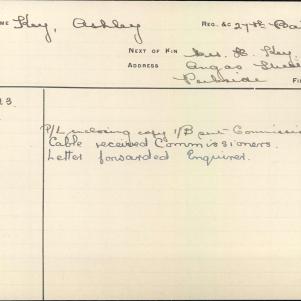 NAME Key, Ashley REG. &c 27th Ba
NEXT OF KIN Mrs. H. Key,
ADDRESS Angas Street
Parkside
P/L enclosing copy I/B sent Commissi
Cable received Commissioners.
Letter forwarded Enquirer.